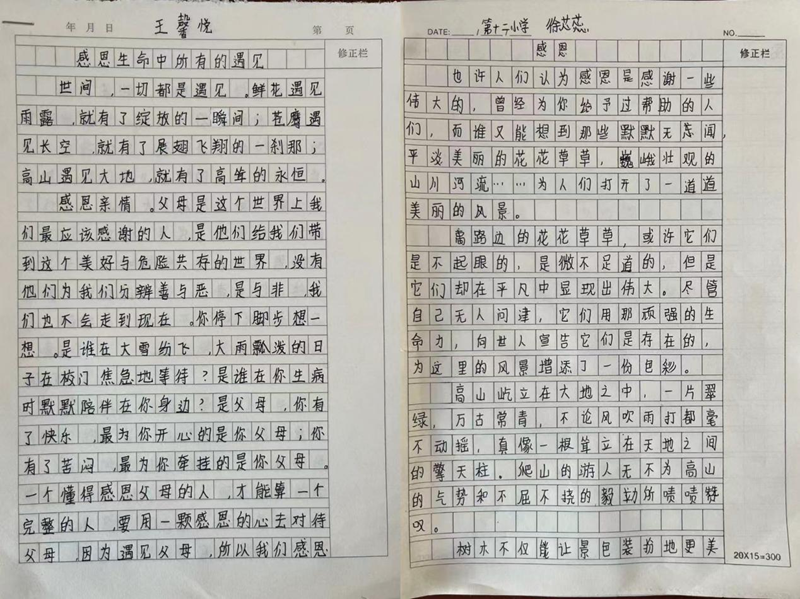 年 月 日 王馨悦 第 页
修正栏
感恩生命中所有的遇见
世间,一切都是遇见。鲜花遇见
雨露,就有了绽放的一瞬间;苍鹰遇
见长空,就有了展翅飞翔的一刹那;
高山遇见大地,就有了高耸的永恒。
感恩亲情。父母是这个世界上我
们最应该感谢的人,是他们给我们带
到这个美好与危险共存的世界,没有
他们为我们分辨善与恶,是与非,我
们也不会走到现在。你停下脚步想一
想。是谁在大雪纷飞,大雨飘泼的日
子在校门 焦急地等待?是谁在你生病
时默默陪伴在你身边?是父母,你有
了快乐,最为你开心的是你父母;你
有了苦闷,最为你牵挂的是你父母。
一个懂得感恩父母的人,才能算一个
完整的人,要用一颗感恩的心去对待
父母,因为遇见父母,所以我们感恩
DATE: 第十二小学 徐芯蕊 NO.
感恩 修正栏
也许人们认为感恩是感谢一些
伟大的,曾经为你给予过帮助的人
们,而谁又能想到那些默默无闻,
平淡美丽的花花草草,巍峨壮观的
山川河流……为人们打开了一道道
美丽的风景。
路边的花花草草,或许它们
是不起眼的,是微不足道的,但是
它们却在平凡中显现出伟大。尽管
自己无人问津,它们用那顽强的生
命力,向世人宣告它们是存在的,
为这里的风景增添了一份色彩。
高山屹立在大地之中,一片翠
绿,万古常青,不论风吹雨打都毫
不动摇,真像一根耸立在天地之间
的擎天柱。爬山的游人无不为高山
的气势和不屈不挠的毅力所啧啧赞
叹。
树木不仅能让景色装扮地更美
20X15=300